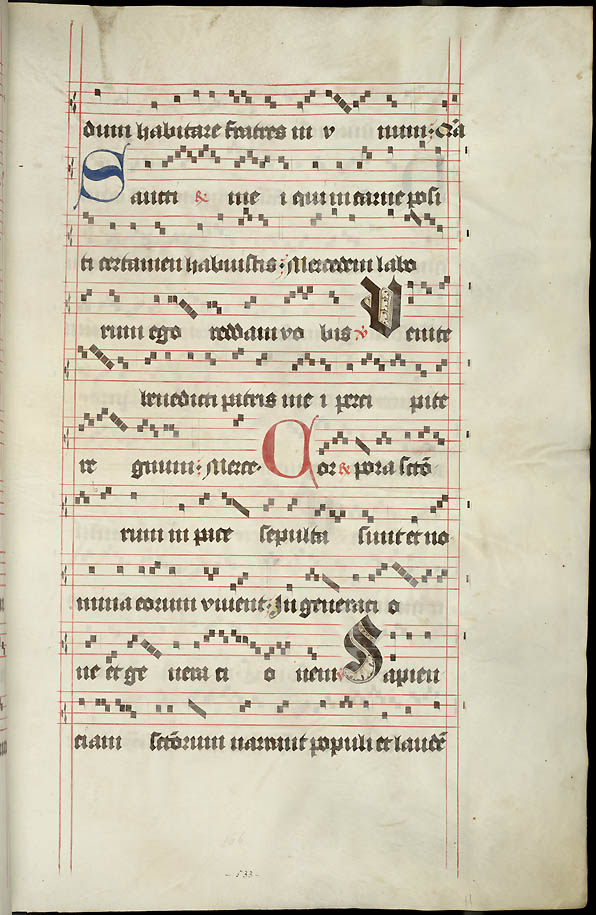 dum habitare fratres in v num: Gťa
Sancti ℟ me i qui in carne posi
ti certamen habuistis: Mercedem labo
rum ego reddam vo bis ℣ Venite
benedicti patris me i perci pite
re gnum: Merce.
Cor ℟ pora sctō
rum in pace sepulta sunt et no
mina eorum vivent: In generati o
ne et ge nerati o nem ℣ Sapien
ciam sctōrum narrant populi et laudē
- 533 -